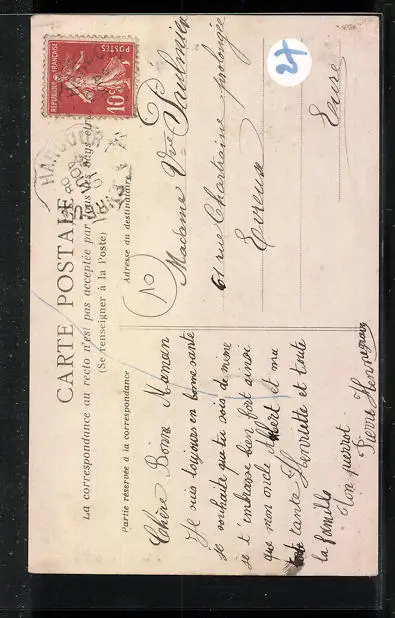 CARTE POSTALE
La correspondance au recto n'est pas acceptée par tous les pays étra
(Se renseigner à la Poste)
Partie réservée à la correspondance
Adresse du destinataire
RÉPUBLIQUE FRANÇAISE
POSTES
10
HARCOURT
Chère Bonne Maman
Je suis toujours en bonne santé
je souhaite que tu sois de même
je t'embrasse bien fort ainsi
que mon oncle Albert et ma
tante Henriette et toute
la famille
Ton pierrot
Pierre
Madame Vve
61 rue Chartraine prolongée
Evreux
Eure
27